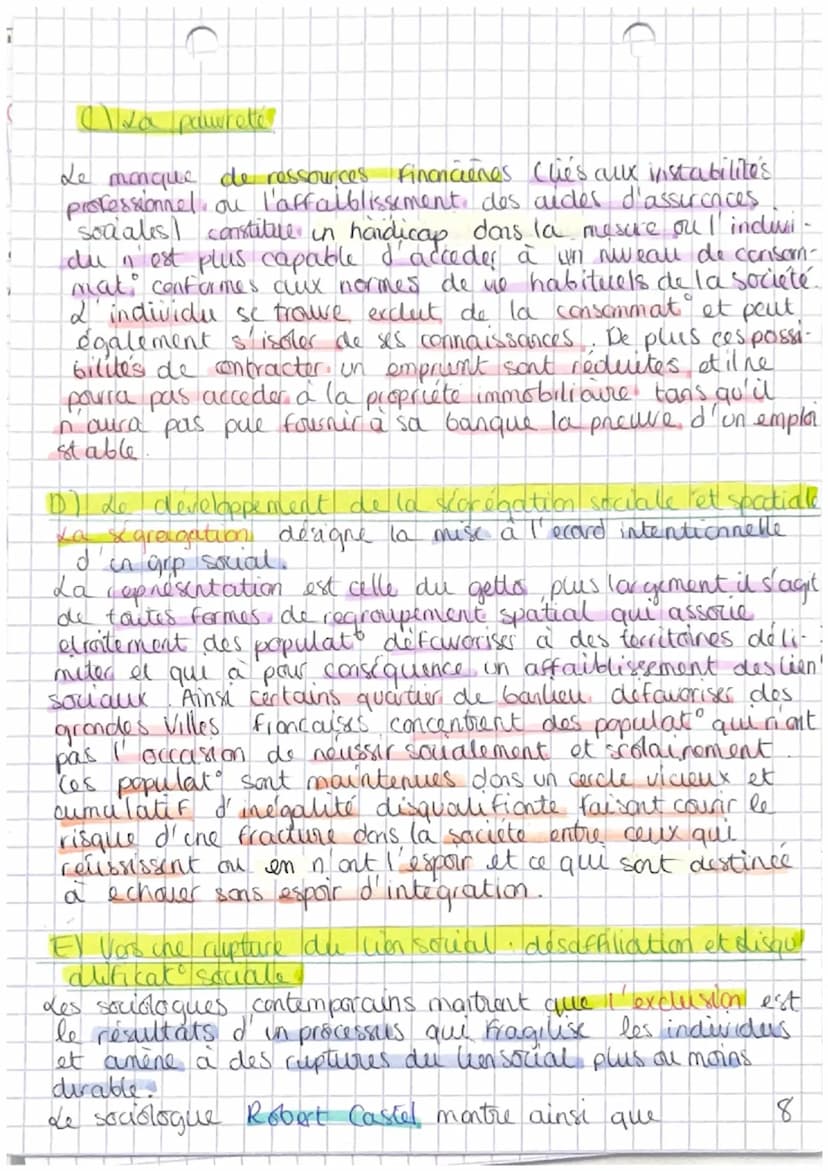 C) La pauvreté
Le manque de ressources financières (liés aux instabilités
professionnel ou l'affaiblissement des aides d'assurances
sociales) constitue un handicap dans la mesure ou l'indivi-
du n'est plus capable d'acceder à un niveau de consom-
mat° conformes aux normes de vie habituels de la société.
L'individu se trouve exclut de la consommat° et peut
également s'isoler de ses connaissances. De plus ces possi-
bilités de contracter un emprunt sont réduites et il ne
pourra pas acceder à la propriété immobilière tans qu'il
n'aura pas pue fournir à sa banque la preuve d'un emploi
stable.
D) Le développement de la ségrégation sociale et spatiale
La ségregation désigne la mise à l'ecard intentionnelle
d'un grp social.
La représentation est celle du getto, plus largement il s'agit
de toutes formes de regroupement spatial qui associe
etroitement des populat° défavoriser à des territoires déli-
miter et qui à pour conséquence un affaiblissement des lien
sociaux. Ainsi certains quartier de banlieu défavoriser des
grandes villes francaises concentrent des populat° qui n'ont
pas l'occasion de réussir socialement et scolairement.
Ces populat° sont maintenues dans un cercle vicieux et
cumulatif d'inégalité disqualifiante faisant courir le
risque d'une fracture dans la société entre ceux qui
réussissent ou en n'ont l'espoir et ce qui sont destinée
à echouer sans espoir d'integration.
E) Vers une rupture du lien social : désaffiliation et disqu
alificat° sociale
Les sociologues contemporains montrent que l'exclusion est
le résultats d'un processus qui fragilise les individus
et amène à des ruptures du lien social plus ou moins
durable.
Le sociologue Robert Castel montre ainsi que 8